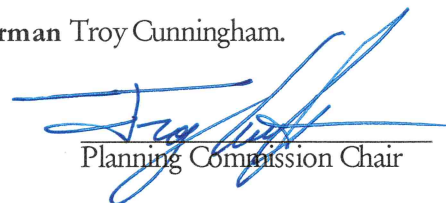 rman Troy Cunningham.
Planning Commission Chair